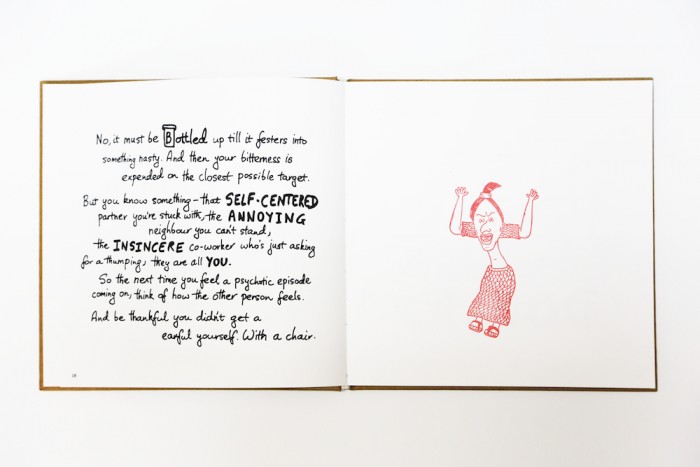 No, it must be Bottled up till it festers into
something nasty. And then your bitterness is
expended on the closest possible target.
But you know something - that SELF-CENTERED
partner you're stuck with, the ANNOYING
neighbour you can't stand,
the INSINCERE co-worker who's just asking
for a thumping, they are all YOU.
So the next time you feel a psychotic episode
coming on, think of how the other person feels.
And be thankful you didn't get a
earful yourself. With a chair.